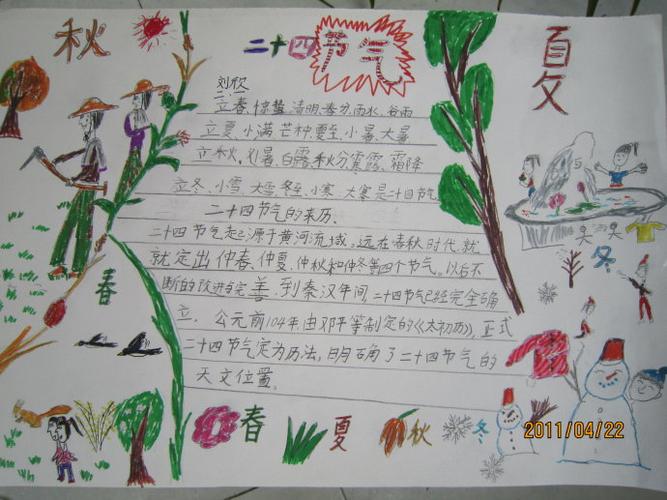 秋
二十四节气
夏
刘欣
立春、惊蛰、清明、春分、雨水、谷雨
立夏、小满、芒种、夏至、小暑、大暑
立秋、处暑、白露、秋分、寒露、霜降
立冬、小雪、大雪、冬至、小寒、大寒是二十四节气
二十四节气的来历、
二十四节气起源于黄河流域,远在春秋时代,就
就定出仲春、仲夏、仲秋和仲冬等四个节气。以后不
断的改进与完善,到秦汉年间,二十四节气已经完全确
立。公元前104年,由邓平等制定的《太初历》,正式
二十四节气定为历法,明确了二十四节气的
天文位置。
春
冬
春
夏
秋
冬
2011/04/22